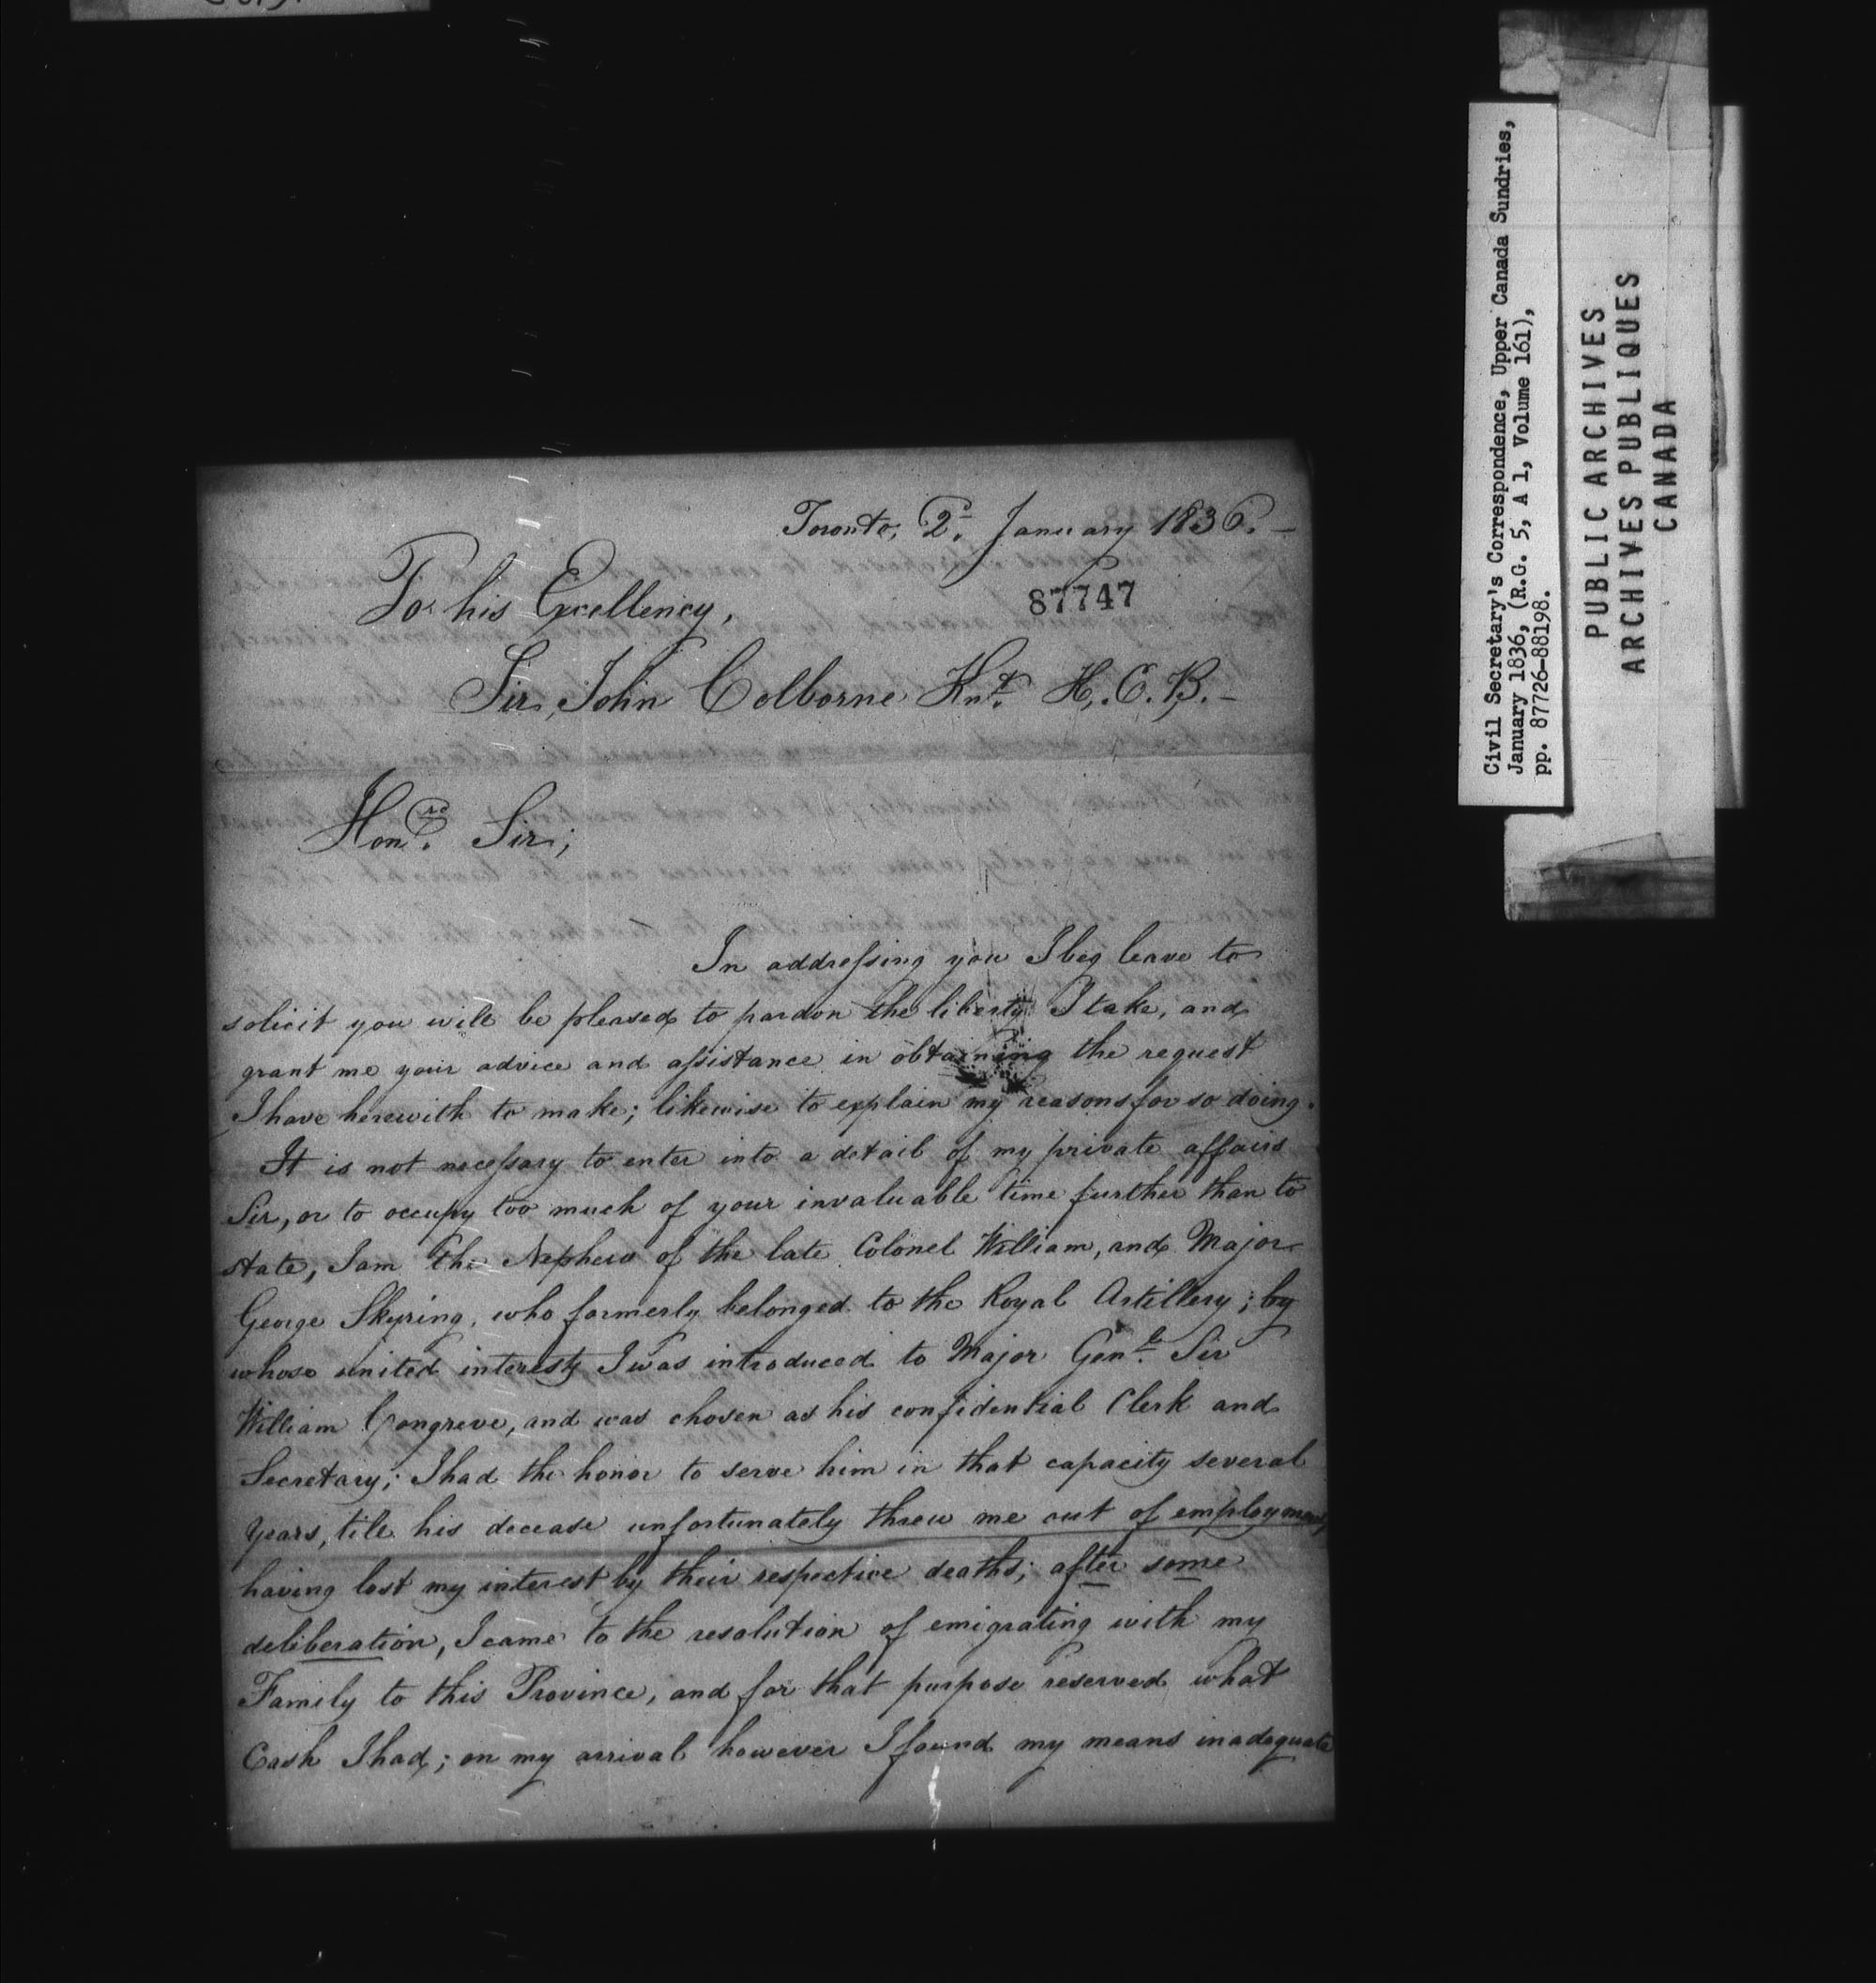 Toronto, 2d. January 1836. —
87747
To his Excellency,
Sir John Colborne Knt. K.C.B. —
Honrd. Sir;
In addressing you I beg leave to
solicit you will be pleased to pardon the liberty I take, and
grant me your advice and assistance in obtaining the request
I have herewith to make; likewise to explain my reasons for so doing.
It is not necessary to enter into a detail of my private affairs
Sir, or to occupy too much of your invaluable time further than to
state, I am the Nephew of the late Colonel William, and Major
George Skyring, who formerly belonged to the Royal Artillery; by
whose united interest I was introduced to Major Genl. Sir
William Congreve, and was chosen as his confidential Clerk and
Secretary; I had the honor to serve him in that capacity several
Years, till his decease unfortunately threw me out of employment,
having lost my interest by their respective deaths; after some
deliberation, I came to the resolution of emigrating with my
Family to this Province, and for that purpose reserved what
Cash I had; on my arrival however I found my means inadequate
Civil Secretary's Correspondence, Upper Canada Sundries,
January 1836, (R.G. 5, A 1, Volume 161),
pp. 87726-88198.
PUBLIC ARCHIVES
ARCHIVES PUBLIQUES
CANADA